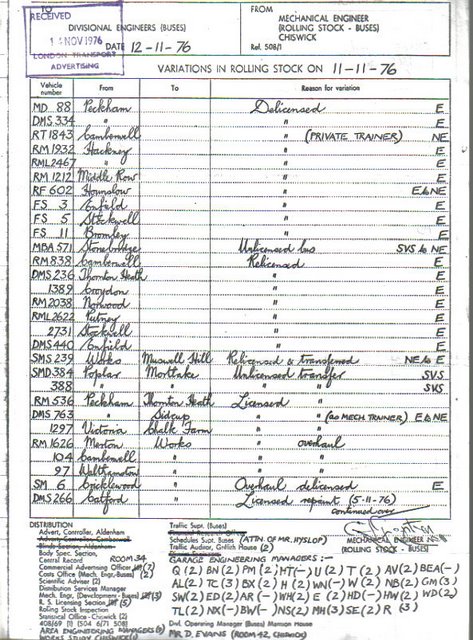 TO
RECEIVED
15 NOV 1976
LONDON TRANSPORT
ADVERTISING
DIVISIONAL ENGINEERS (BUSES)
DATE 12-11-76
FROM
MECHANICAL ENGINEER
(ROLLING STOCK - BUSES)
CHISWICK
Ref. 508/1
VARIATIONS IN ROLLING STOCK ON 11-11-76
Vehicle number From To Reason for variation
MD 88 Peckham Delicensed E
DMS 334 " " E
RT 1843 Camberwell " (PRIVATE TRAINER) NE
RM 1932 Hackney " E
RML 2467 " " E
RM 1212 Middle Row " E
RF 602 Hounslow " E to NE
FS 3 Enfield " E
FS 5 Stockwell " E
FS 11 Bromley " E
MBA 571 Stonebridge Unlicensed bus SVS to NE
RM 838 Camberwell Relicensed E
DMS 236 Thornton Heath " E
1389 Croydon " E
RM 2038 Norwood " E
RML 2622 Putney " E
2731 Stockwell " E
DMS 440 Enfield " E
SMS 239 Works Muswell Hill Relicensed & transferred NE to E
SMD 384 Poplar Mortlake Unlicensed transfer SVS
388 " " " SVS
RM 536 Peckham Thornton Heath Licensed "
DMS 763 " Sidcup " " (as MECH TRAINER) E to NE
1297 Victoria Chalk Farm " "
RM 1626 Merton Works " overhaul
104 Camberwell " " "
97 Walthamstow " " "
SM 6 Cricklewood " Overhaul delicensed E
DMS 266 Catford " Licensed repaint (5-11-76)
continued over
MECHANICAL ENGINEER
(ROLLING STOCK - BUSES)
DISTRIBUTION
Advert, Controller, Aldenham
Body Spec. Section,
Central Record ROOM 34
Commercial Advertising Office (7)
Costs Office (Mech. Engr.-Buses) (2)
Scientific Adviser (2)
Distribution Services Manager
Mech. Engr, (Development - Buses) (3)
R. S. Licensing Section (5)
Rolling Stock Inspection
Statistical Office - Chiswick (2)
408/69 (1) 504 6/71 508
AREA ENGINEERING MANAGERS
WORKS STUDY CHISWICK (1)
Traffic Supt. (Buses)
Schedules Supt. Buses (ATTN OF MR. HYSLOP)
Traffic Auditor, Griffith House (2)
GARAGE ENGINEERING MANAGERS :-
Q (2) BN (2) PM (2) HT(-) U (2) T (2) AV (2) BEA (-)
AL (2) TC (3) BX (2) H (2) WN(-) W (2) NB (2) GM (3)
SW(2) ED(2) AR(-) WH(2) E (2) HD(-) HW(2) WD(2)
TL (2) NX(-) BW(-) NS(2) MH(3) SE(2) R (3)
Divl. Operating Manager (Buses) Manson House
MR D. EVANS (ROOM 42, CHISWICK)